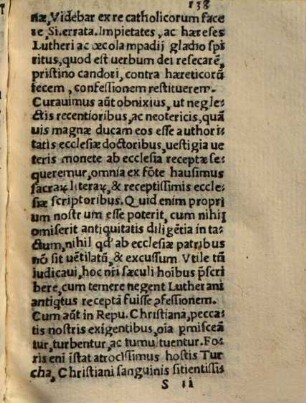 138
næ, Videbar ex re catholicorum face
re Si errata. Impietates, ac hæreses
Lutheri ac œcolampadij gladio spi
ritus, quod est uerbum dei resecarē,
pristino candori, contra hæreticorū
tecem, confessionem restituerem.
Curauimus aūt obnixius, ut negle-
ctis recentioribus, ac neotericis, quā
uis magnæ ducam eos esse authori
tatis ecclesiæ doctoribus, uestigia ue
teris monete ab ecclesia receptæ se-
queremur, omnia ex fōte hausimus
sacraꝝ literaꝝ, & receptissimis eccle-
siæ scriptoribus. Quid enim propri
um nostrum esse poterit, cum nihil
omiserit antiquitatis diligētia in ta-
ctum, nihil qđ ab ecclesiæ patribus
nō sit uētilatū, & excussum Vtile tn̄
iudicaui, hoc nr̄i sæculi hoībus p̄scri
bere, cum temere negent Lutherani
antiqtus receptā fuisse ꝓfessionem.
Cum aūt in Repu. Christiana, pecca-
tis nostris exigentibus, oīa ꝑmisceā
tur, turbentur, ac tumultuentur. Fo-
ris eni īstat atrocissimus hostis Tur
cha, Christiani sanguinis sitientissis
S ii